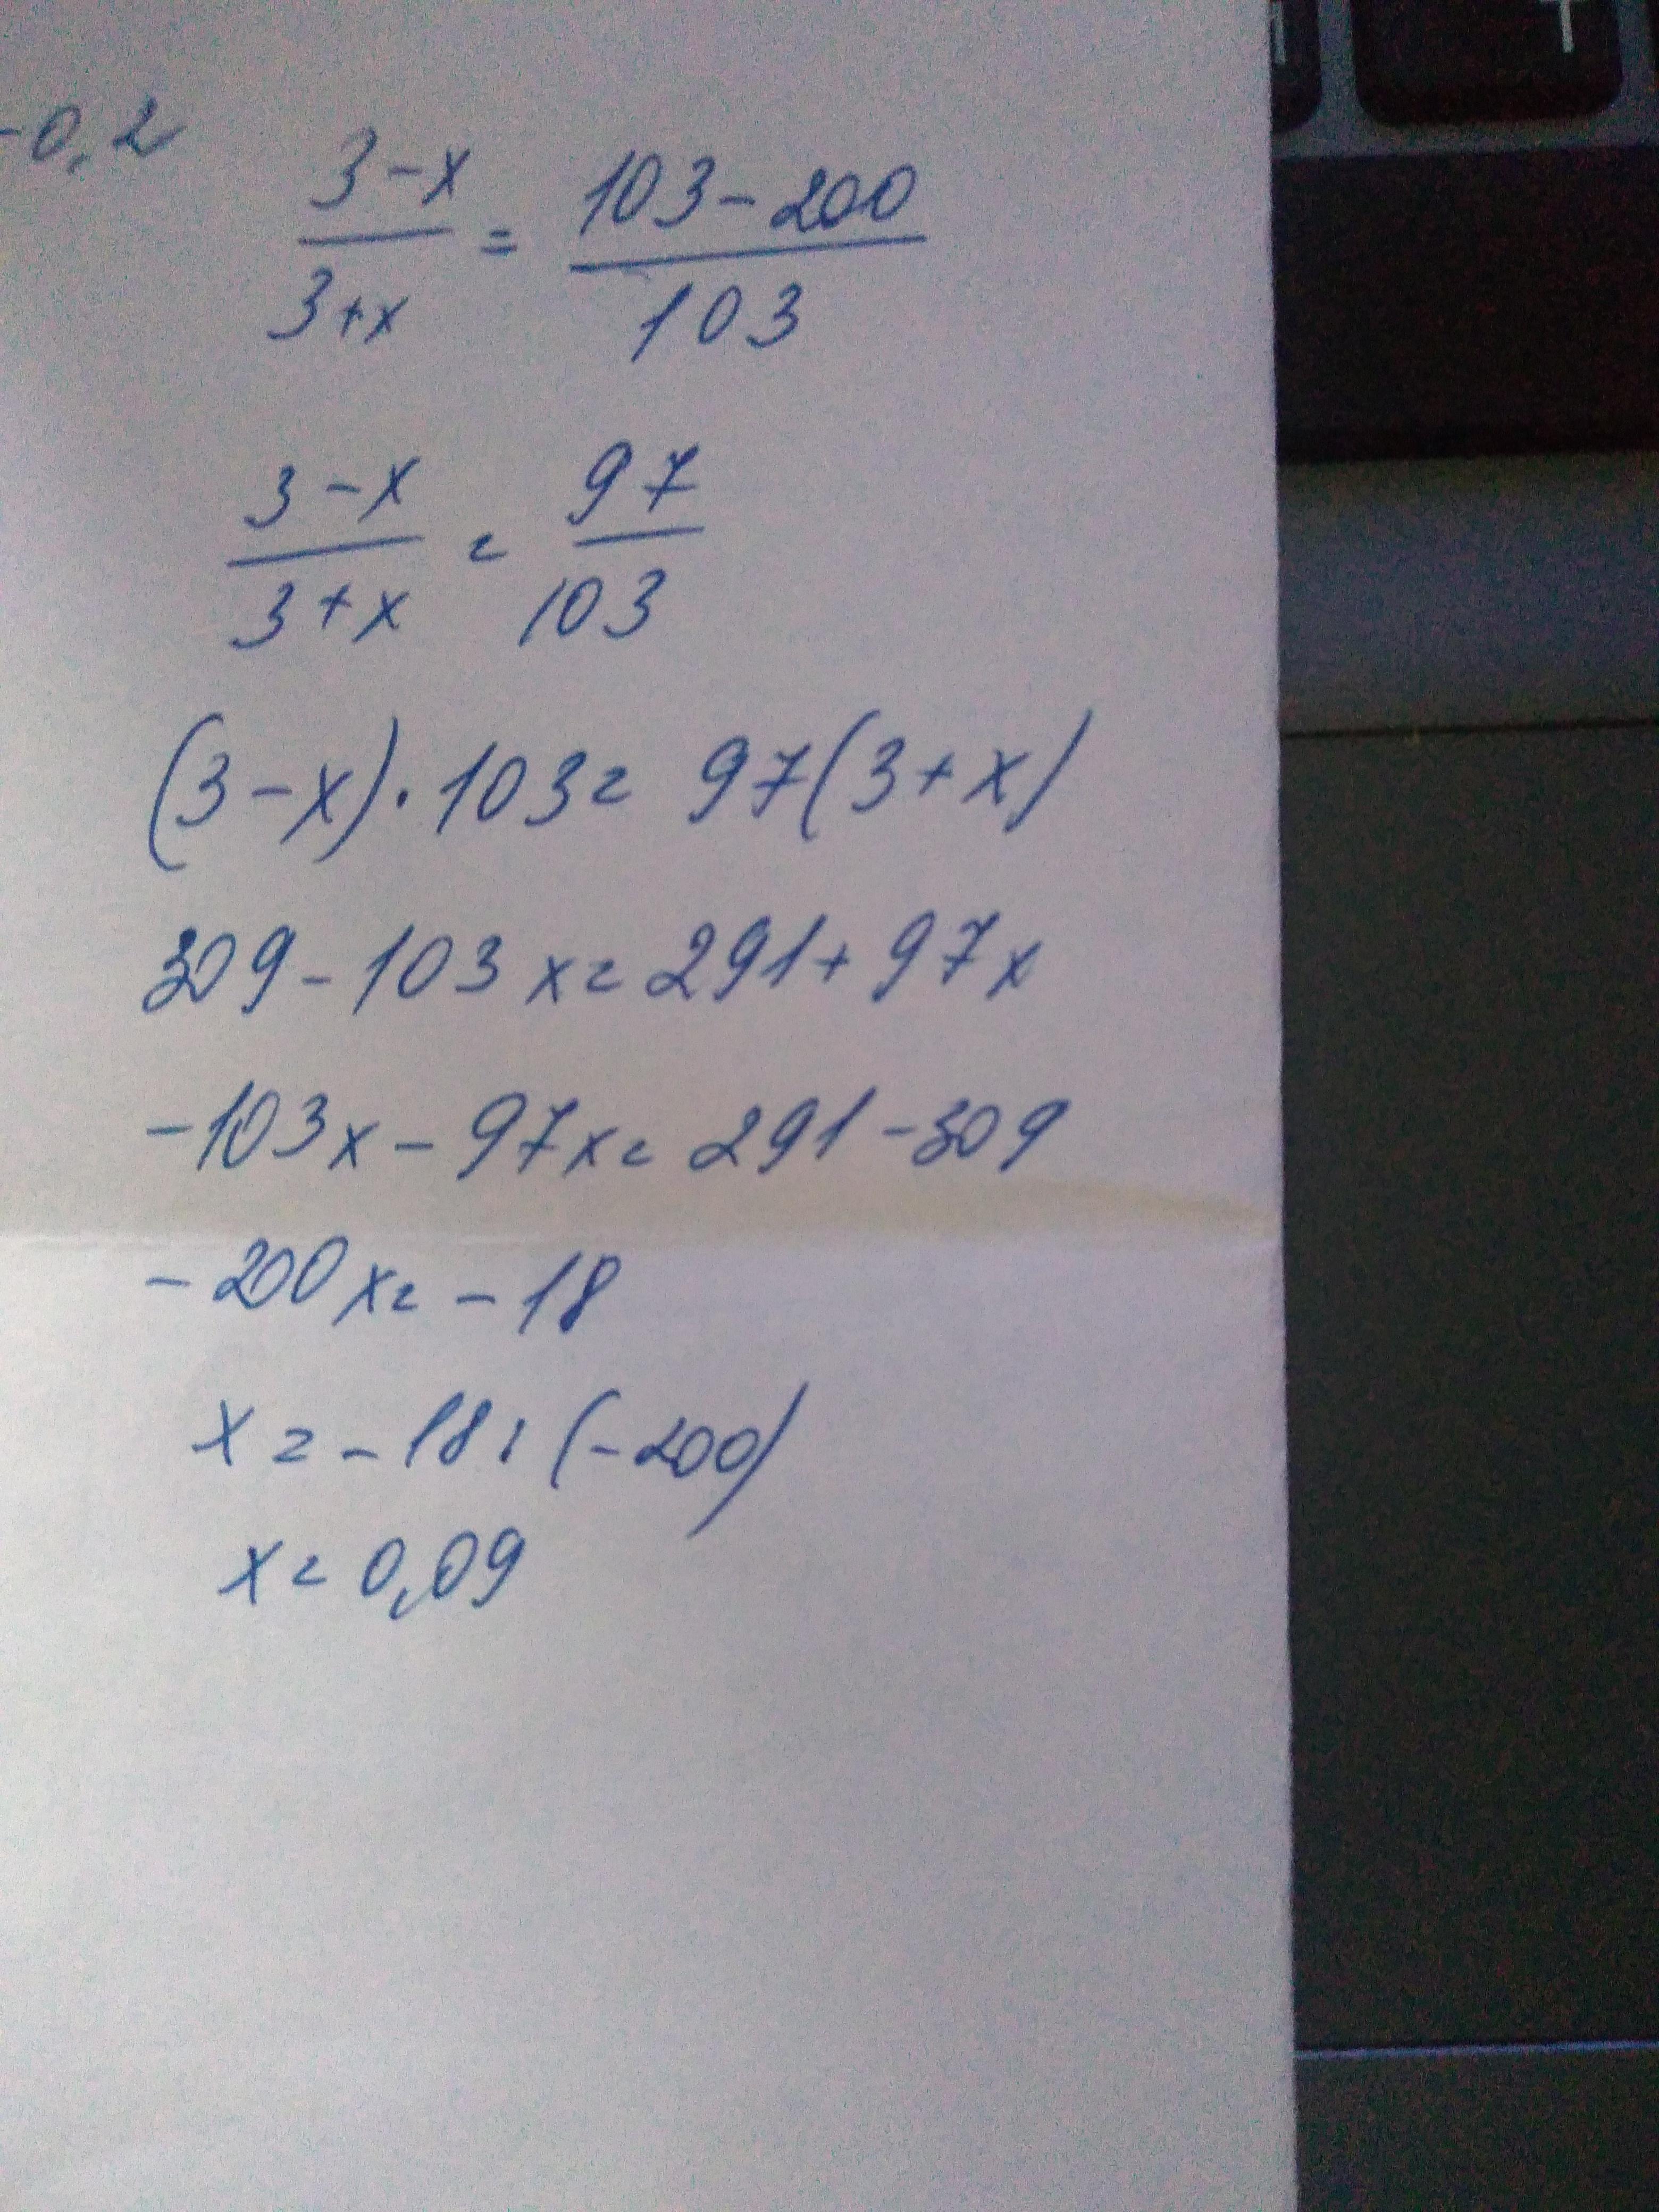 -0,2
(3-x)/(3+x) = (103-200)/103
(3-x)/(3+x) = 97/103
(3-x)·103= 97(3+x)
309-103x=291+97x
-103x-97x=291-309
-200x=-18
x=-18:(-200)
x=0,09